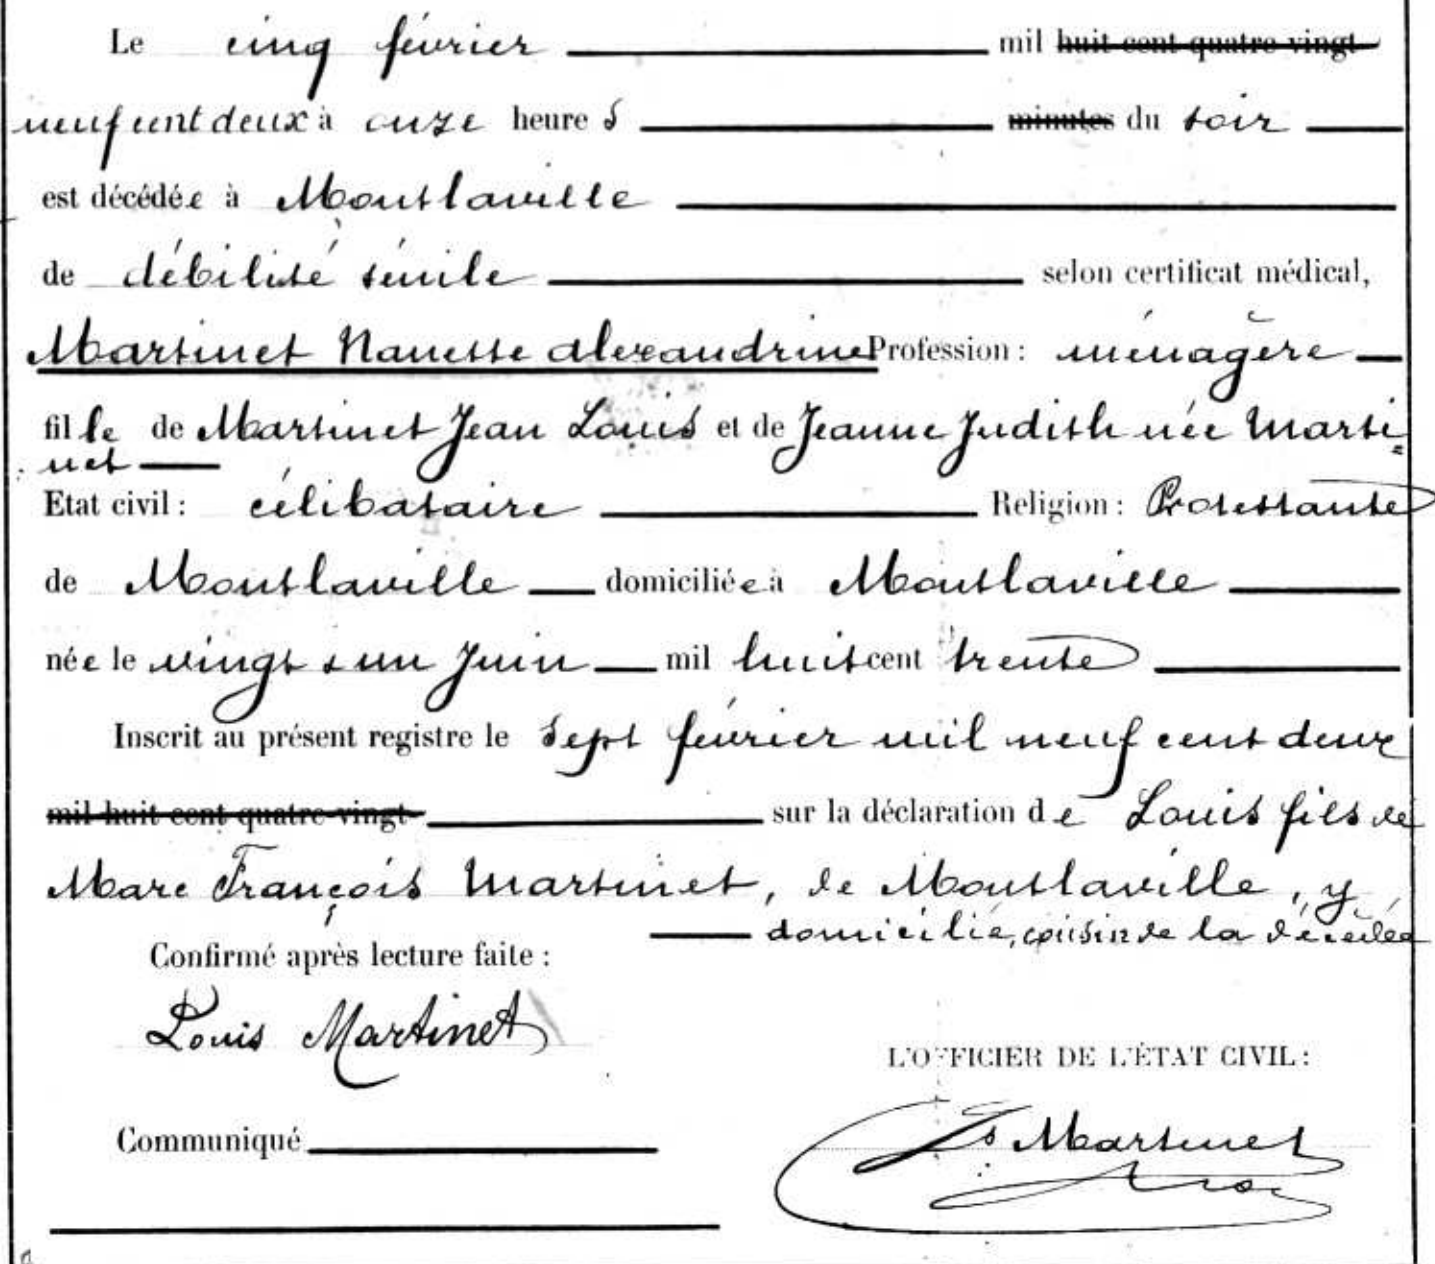 Le cinq février mil huit cent quatre-vingt-
neuf cent deux à onze heures minutes du soir
est décédée à Montlaville
de débilité sénile selon certificat médical,
Martinet Nanette Alexandrine Profession : ménagère
fille de Martinet Jean Louis et de Jeanne Judith née Marti=
net
Etat civil : célibataire Religion : Protestante
de Montlaville domiciliée à Montlaville
née le vingt & un Juin mil huit cent trente
Inscrit au présent registre le sept février mil neuf cent deux
mil huit cent quatre-vingt- sur la déclaration de Louis fils de
Marc François Martinet, de Montlaville, y
domicilié, cousin de la décédée
Confirmé après lecture faite :
Louis Martinet
L'OFFICIER DE L'ÉTAT CIVIL :
Communiqué
Ls Martinet